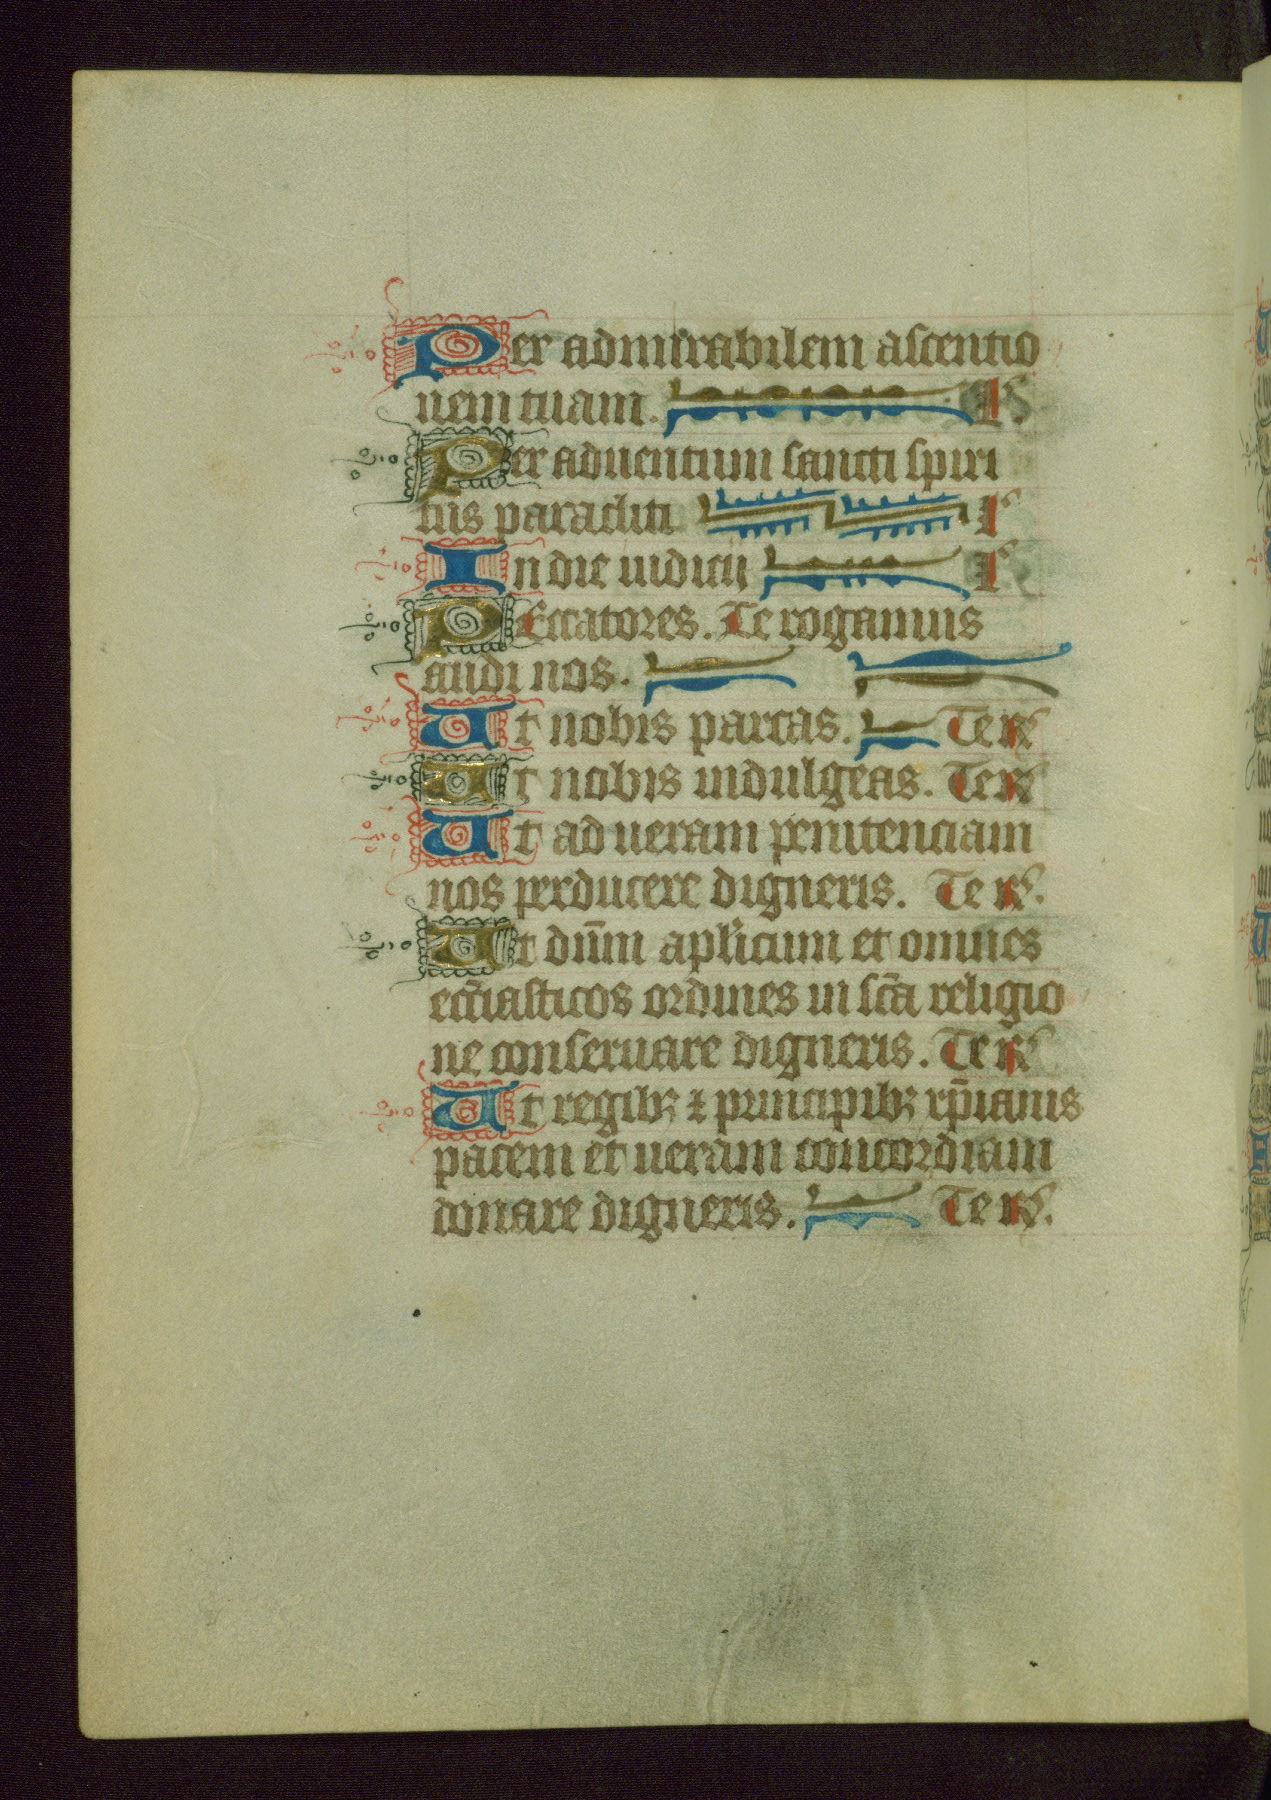 Per admirabilem ascentio
nem tuam. l
Per aduentum sancti spiri
tus paracliti l
In die iudicii l
PEccatores. Te rogamus
audi nos.
Ut nobis parcas. Te r
Ut nobis indulgeas. Te r
Ut ad ueram penitenciam
nos perducere digneris. Te r.
Ut dn̄m aplicum et omnes
eccl̄iasticos ordines in sc̄a religio
ne conseruare digneris. Te r
Ut regibꝫ ⁊ principibꝫ xp̄ianis
pacem et ueram concordiam
donare digneris. Te r.